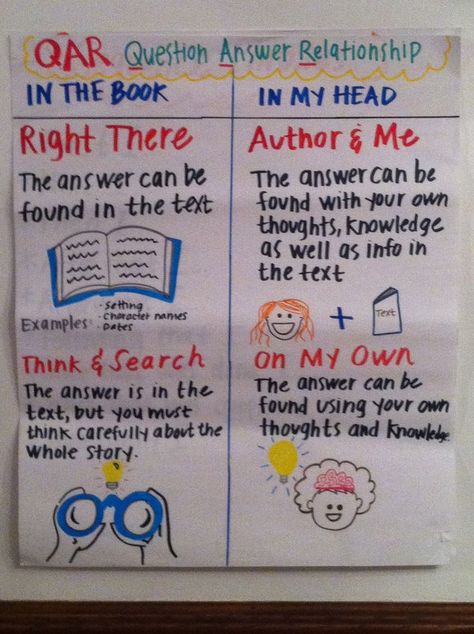 QAR Question Answer Relationship
IN THE BOOK
Right There
The answer can be
found in the text
Examples:
· Setting
· Character names
· Dates
Think & Search
The answer is in the
text, but you must
think carefully about the
whole story.
IN MY HEAD
Author & Me
The answer can be
found with your own
thoughts, knowledge
as well as info in
the text
+
Text
On My Own
The answer can be
found using your own
thoughts and knowledge.